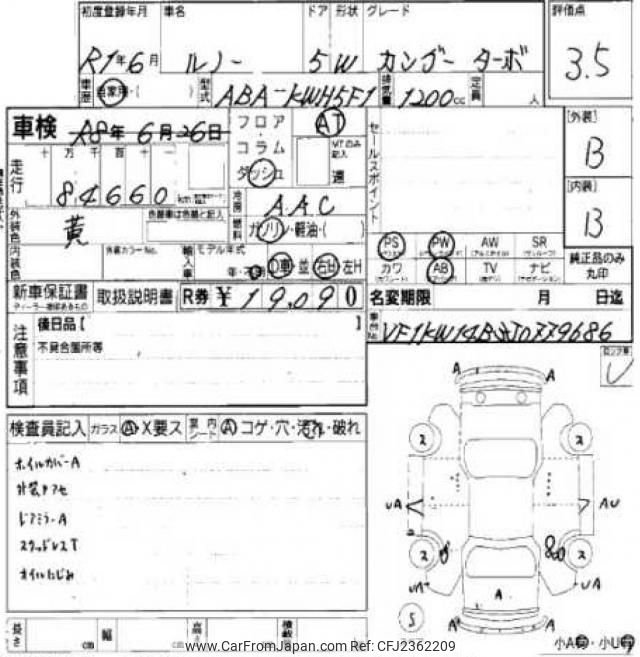 初度登録年月 車名 ドア 形状 グレード 評価点
R1年6月 ルノー 5 W カングー ターボ 3.5
車歴 自家用・( ) 型式 ABA-KWH5F1 排気量 1200cc 定員 人
車検 R8年6月26日 フロア AT セールスポイント [外装]
走行 十万千百十一 コラム MTのみ記入 B
84660 km ダッシュ 速
外装色 黄 色替車は色替と記入 冷房 AAC [内装]
燃料 ガソリン・軽油・( ) B
内装色 色替カラーNo. 輸入車 モデル年式 PS PW AW SR
年・ D車 並 右H 左H カワ AB TV ナビ 純正品のみ丸印
新車保証書 取扱説明書 R券 ¥19,090 名変期限 月 日迄
注意事項 後日品【 】 車台No. VF1KW14B
不具合箇所等
検査員記入 ガラス A X要ス 内張シート A コゲ・穴・汚れ・破れ
ホイルカバーA
外装クスセ
ドアミラーA
スタッドレスT
オイルにじみ
A A
ス ス
UA AU
ス ス
UA A UA
S A A
長さ cm 幅 cm 高さ
小A・小U
www.CarFromJapan.com Ref: CFJ2362209